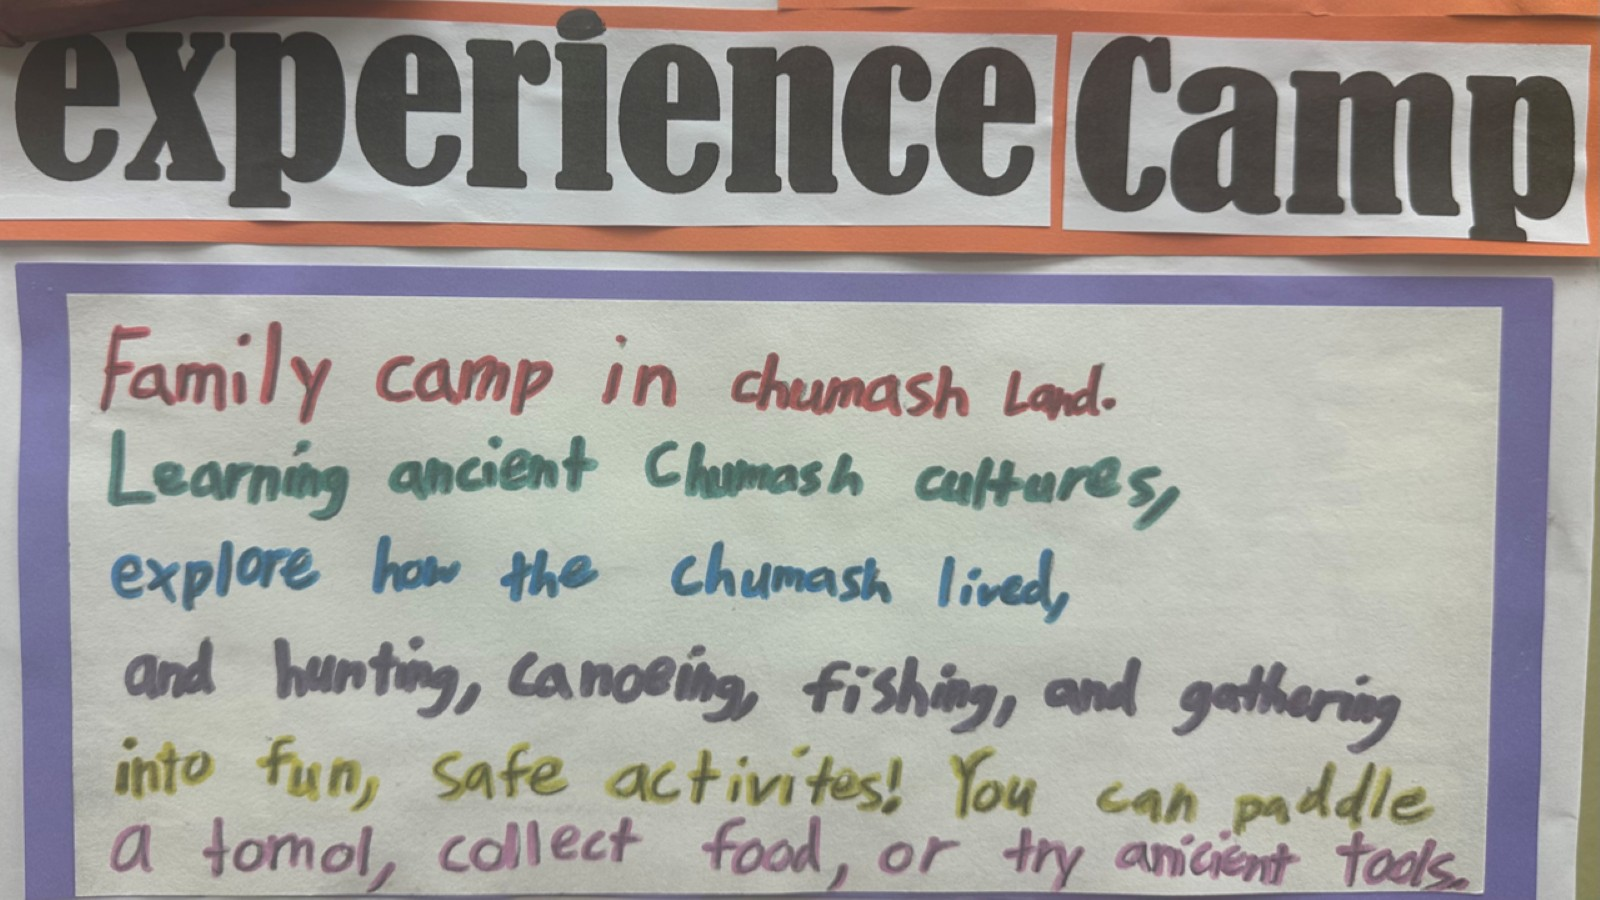 experience Camp
Family camp in chumash Land.
Learning ancient Chumash cultures,
explore how the Chumash lived,
and hunting, canoeing, fishing, and gathering
into fun, safe activites! You can paddle
a tomol, collect food, or try anicient tools.